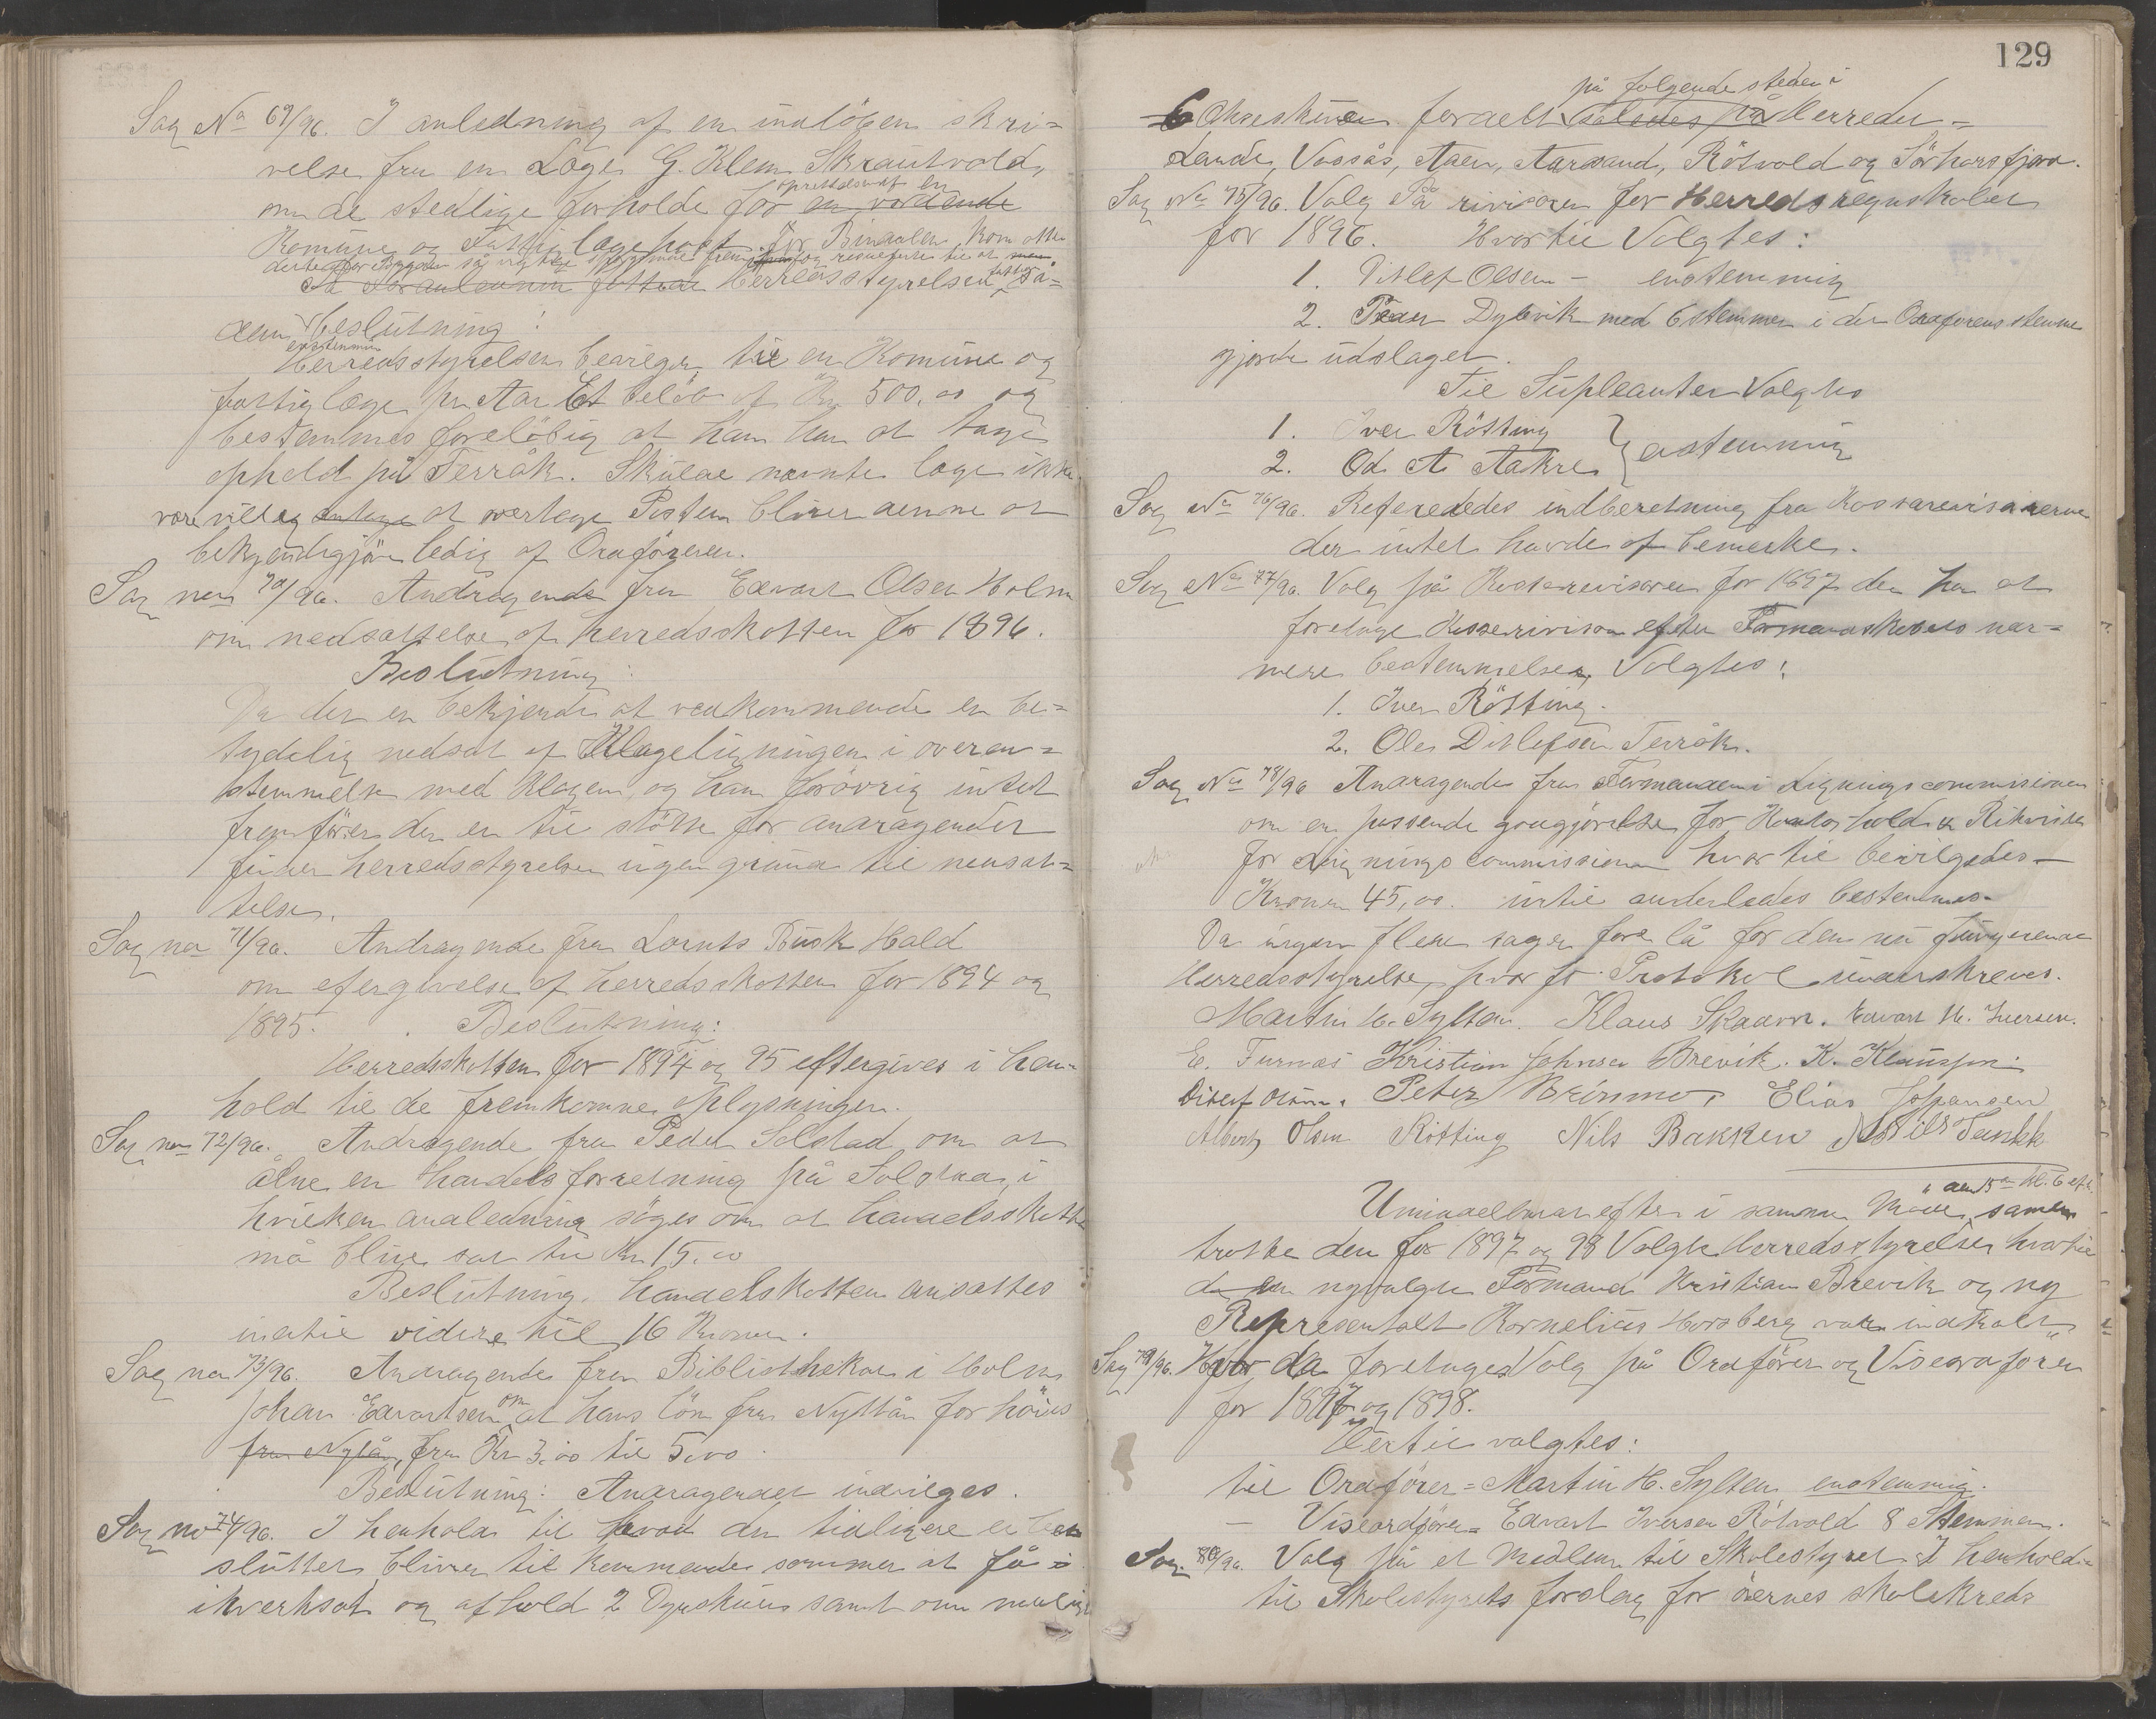 Sag No 69/96. I anledning af en indlöben skri=
velse fra en Læge G. Klem Skrautvold,
om de stedlige forholde for en vordende oprettelse af en
Komune og Fattig lægepost for Bindalen kom efter
Herredsstyrelsen fatter så=
dem beslutning!
enstemmin
Herredsstyrelsen bevilger til en Komune og
fattig læge pr Aar Et beløb af Kr 500,00 og
bestemmes foreløbig at ham har at tage
ophold på Terråk. Skulde nævnte læge ikke
være villig antage at overtage Posten bliver denne at
bekjendtgjöre ledig af Ordföreren.
Sag no 70/96. Andragende fra Edvart Olsen Holm
om nedsættelse af herredsskatten for 1896.
Beslutning:
Da det er bekjendt at vedkommende er be=
tydelig nedsat af Klageligningen i overen=
stemmelse med Klagen, og han forövrig intet
fremförer der er til stötte for andragendet
finder herredsstyrelsen ingen grund til nedsæt=
telse.
Sag no 71/96. Andragende fra Lornts Busk Hald
om efergivelse af herredsskatten for 1894 og
1895. Beslutning:
Herredsskatten for 1894 og 95 eftergives i hen=
hold til de fremkomne oplysninger.
Sag no 72/96. Andragende fra Peder Solstad om at
åbne en handelsforretning på Solstad, i
hvilken andledning söges om at handelsskatten
må blive sat til Kr 15,00
Beslutning. Handelskatten ansattes
indtil videre til 16 Kroner.
Sag no 73/96. Andragende fra Bibliothekar i Holm
Johan Edvartsen om at hans lön fra Nyttår forhöies
fra Nytår, fra Kr 3,00 til 5,00
Beslutning: Andragendet indvilges.
Sag no 74/96. I henhold til hvad der tidligere er be
sluttet bliver til kommende sommer at få i
ikverksat og afhold 2 Dyrskuer samt om mulig
129
på følgende steder i
6 Okseskuer fordelt således på Herredet=
Lande, Vassås, Aaen, Aarsand, Rötvold og Sörhorsfjord.
Sag No 75/96. Valg På rivisorer for Herredsregnskabet
for 1896. Hvortil Valgtes:
1. Ditlef Olsen – enstemmig
2. Peder Dybvik med 6 stemmer i det Ordförens stemme
gjorde udslaget.
Til Supleanter Valgtes
1. Iver Rötting
2. Od. A. Aakre } enstemmig
Sag No 76/96. Refereredes indberetning fra Kasserevisorerne
der intet havde at bemerke.
Sag No 77/96. Valg på Kasserevisorer for 1897 der har at
foretage Kasserivison efter Formandskabets nær=
mere bestemmelser, Valgtes:
1. Iver Rötting.
2. Ole Ditlefsen Terråk.
Sag No 78/96 Andragende fra Formanden i Ligningscommissionen
om en passende godtgjörelse for Kontorhold &
for Ligningscommissionen hvortil bevilgedes –
Kroner 45,00. indtil anderledes bestemmes.
Da ingen flere sager fore lå for den nu fungerende
Herredsstyrelse, hvor for Protokol underskreves.
Martin H. Sylten. Klaus Skaarn. Edvart M. Iversen.
E. Furnæs Kristian Johnsen Brevik. K. Klausson.
Ditlef Olsen. Peter Brönmo, Elias Johansen
Albert Olsen Rötting Nils Bakken Nils Terråk
" den 15de kl. 6 eft.
Umiddelbar efter i samme Möde, sammen
traadte den for 1897 og 98 Valgte Herredsstyrelse hvortil
den nyvalgte Formand Kristian Brevik og ny
Represantalt Kornelius Horsberg var indkalt"
Sag 79/96. Hvor da foretages Valg på Ordförer og Viseordförer
for 1897 og 1898.
Hertil valgtes:
til Ordförer = Martin H. Sylten enstemmig.
— Viseordförer = Edvart Iversen Rötvold 8 Stemmer.
Sag 80/96. Valg på et Medlem til Skolestyret I henhold=
til Skolestyrets forslag for öernes skolekreds